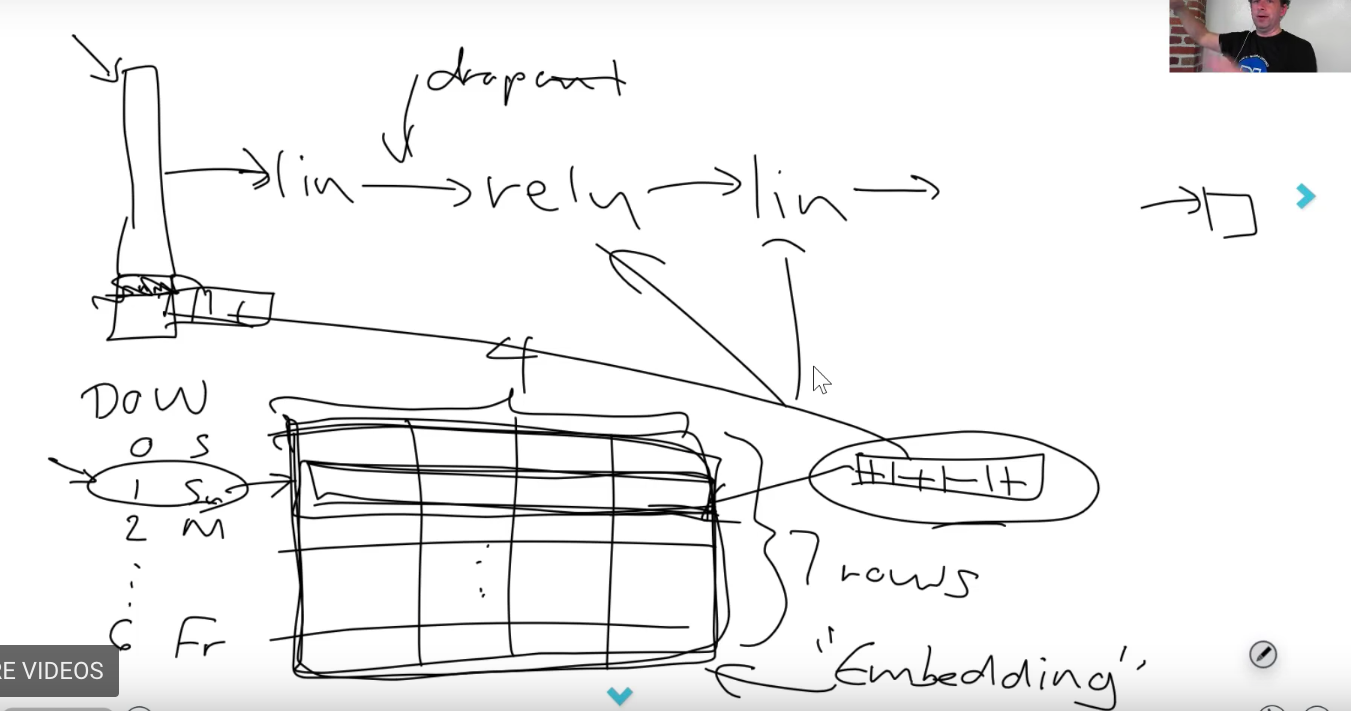 dropout
lin → relu → lin →
4
DOW
0 S
1 Sun
2 M
⋮
6 Fr
7 rows
"Embedding"
RE VIDEOS